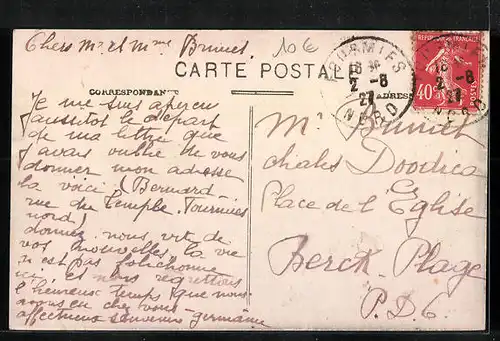 Chers Mr et Mme Brunet
10 €
CARTE POSTALE
CORRESPONDANCE
ADRESSE
FOURMIES
2 -8
27
NORD
REPUBLIQUE FRANÇAISE
40c
POSTES
2 -8
27
NORD
Je me suis aperçu
aussitot le départ
de ma lettre que
j'avais oublié de vous
donner mon adresse
la voici (Bernard
rue du Temple. Fourmies
nord)
donnez nous vite de
vos nouvelles la vie
n est pas folichonne
ici et nous regrettons
l'heureux temps que nous
avons eu chez vous
affectueux souvenir germaine
Mr Brunet
chalet Doodica
Place de l'Eglise
Berck-Plage
P.D.C.